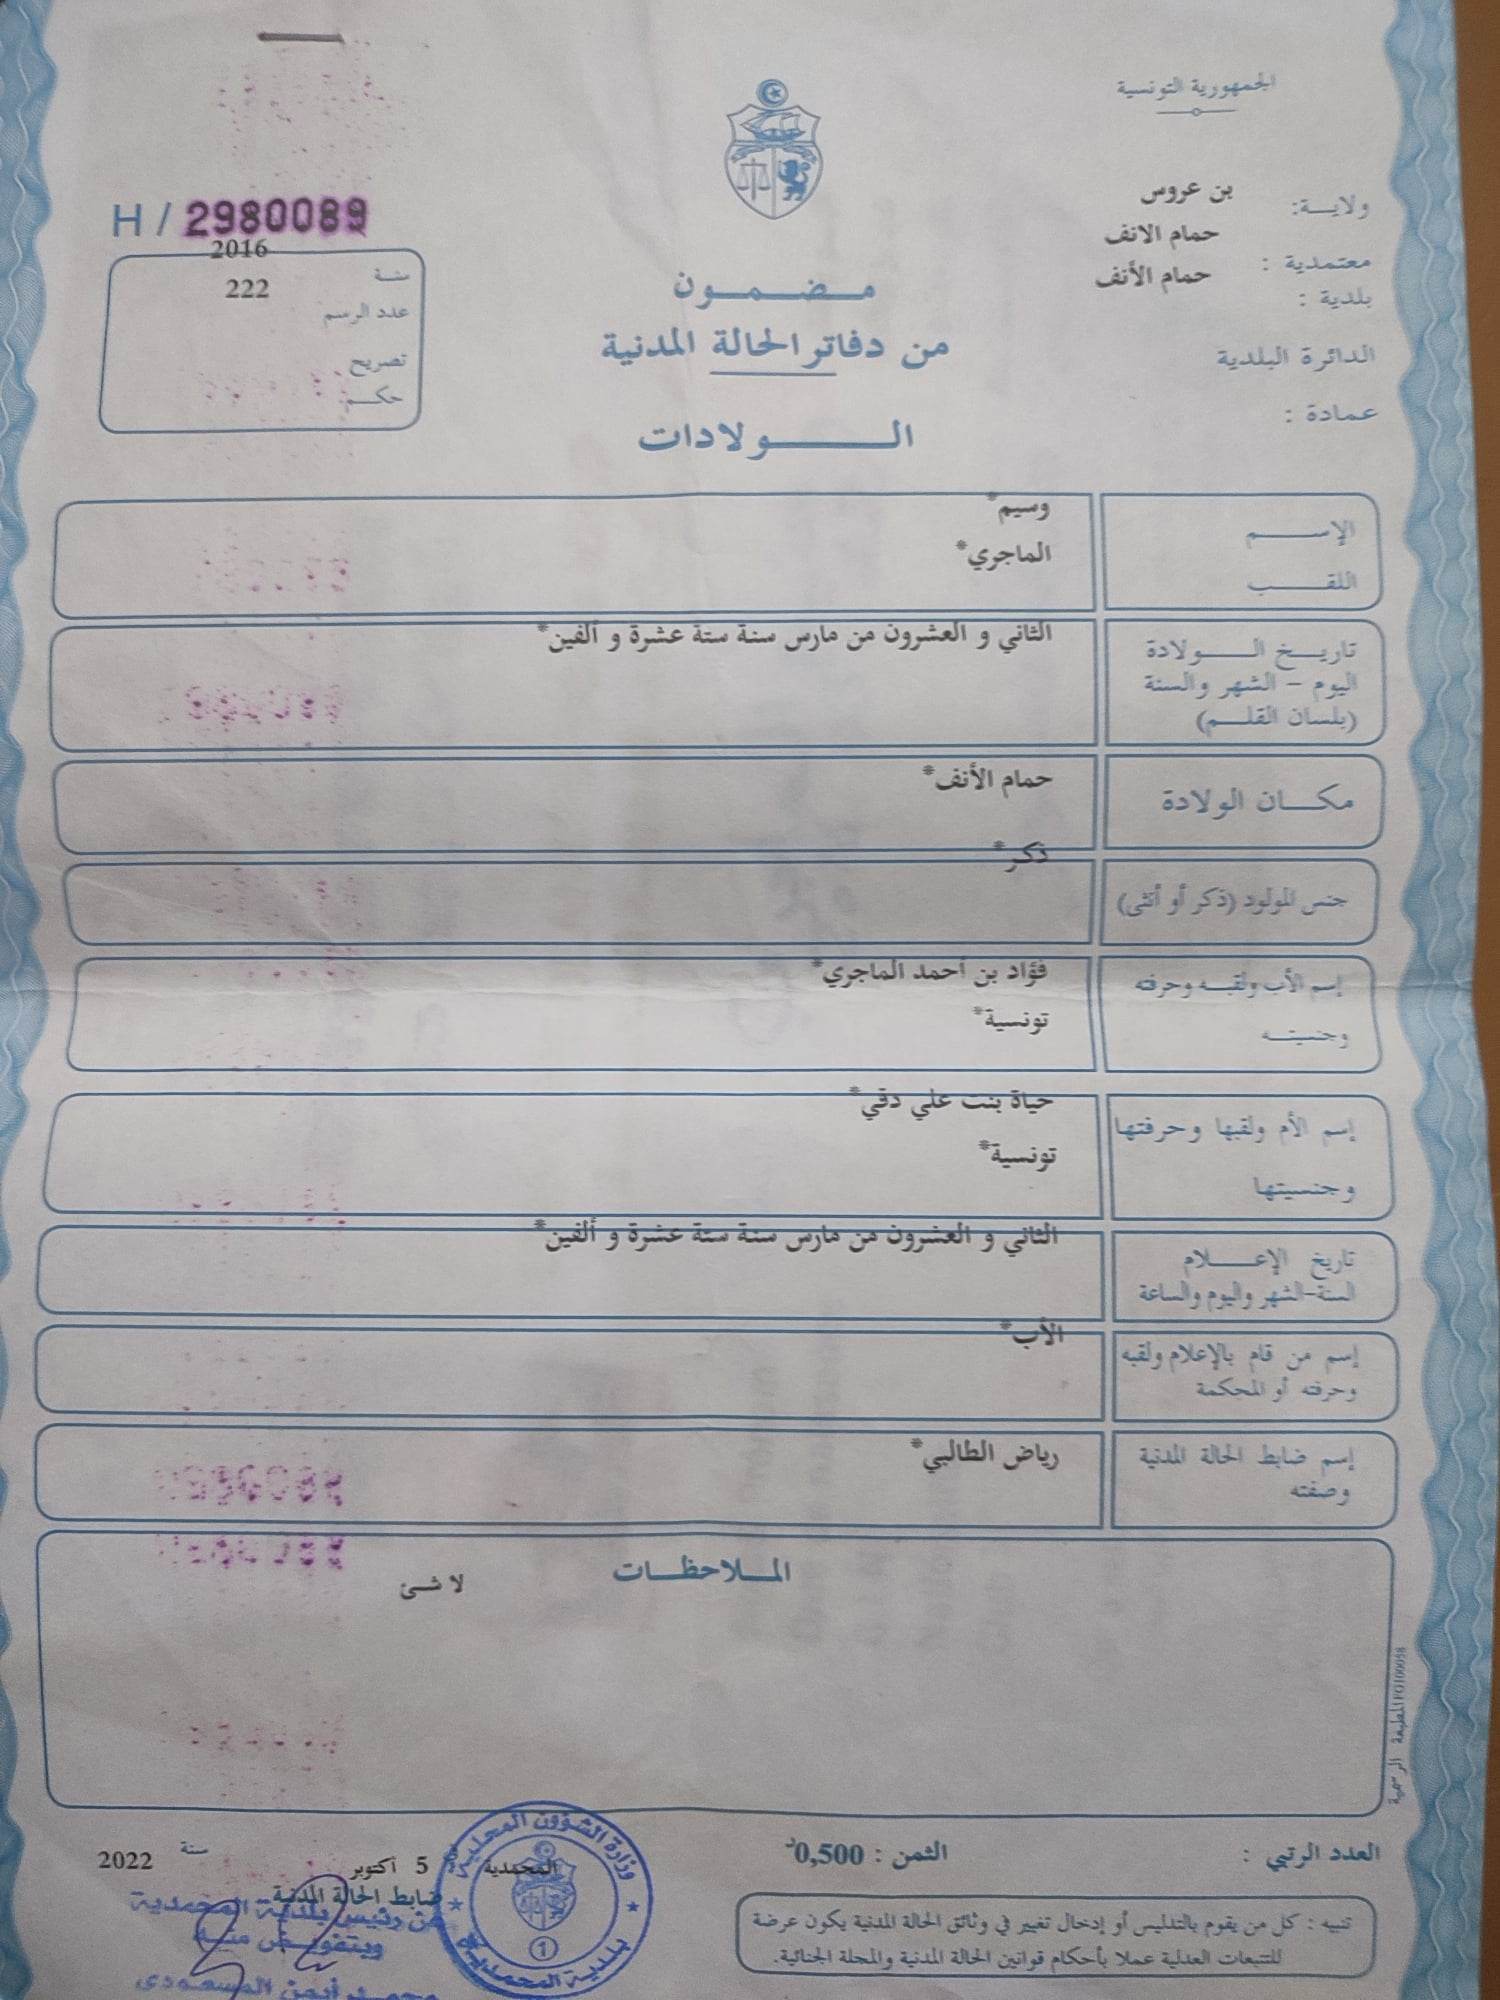 الجمهورية التونسية
ولاية: بن عروس
معتمدية : حمام الانف
بلدية : حمام الأنف
الدائرة البلدية
عمادة :
H / 2980089
سنة 2016
عدد الرسم 222
تصريح
حكم
مضمون
من دفاتر الحالة المدنية
الولادات
الإسم وسيم*
اللقب الماجري*
تاريخ الولادة الثاني و العشرون من مارس سنة ستة عشرة و ألفين*
اليوم – الشهر والسنة
(بلسان القلم)
مكان الولادة حمام الأنف*
جنس المولود (ذكر أو أنثى) ذكر*
إسم الأب ولقبه وحرفته فؤاد بن أحمد الماجري*
وجنسيته تونسية*
إسم الأم ولقبها وحرفتها حياة بنت علي دقي*
وجنسيتها تونسية*
تاريخ الإعلام الثاني و العشرون من مارس سنة ستة عشرة و ألفين*
السنة-الشهر واليوم والساعة
إسم من قام بالإعلام ولقبه الأب*
وحرفته أو المحكمة
إسم ضابط الحالة المدنية رياض الطالبي*
وصفته
الملاحظات
لا شئ
المطبعة الرسمية FO100058
العدد الرتبي :
الثمن : 0,500د
تنبيه : كل من يقوم بالتدليس أو إدخال تغيير في وثائق الحالة المدنية يكون عرضة
للتتبعات العدلية عملا بأحكام قوانين الحالة المدنية والمجلة الجنائية.
المحمدية 5 أكتوبر سنة 2022
ضابط الحالة المدنية
عن رئيس بلدية المحمدية
وبتفويض منه
محمد أيمن المسعودي
وزارة الشؤون المحلية
بلدية المحمدية
1